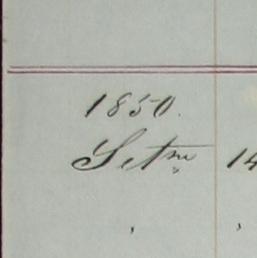 1850.
Setm 14